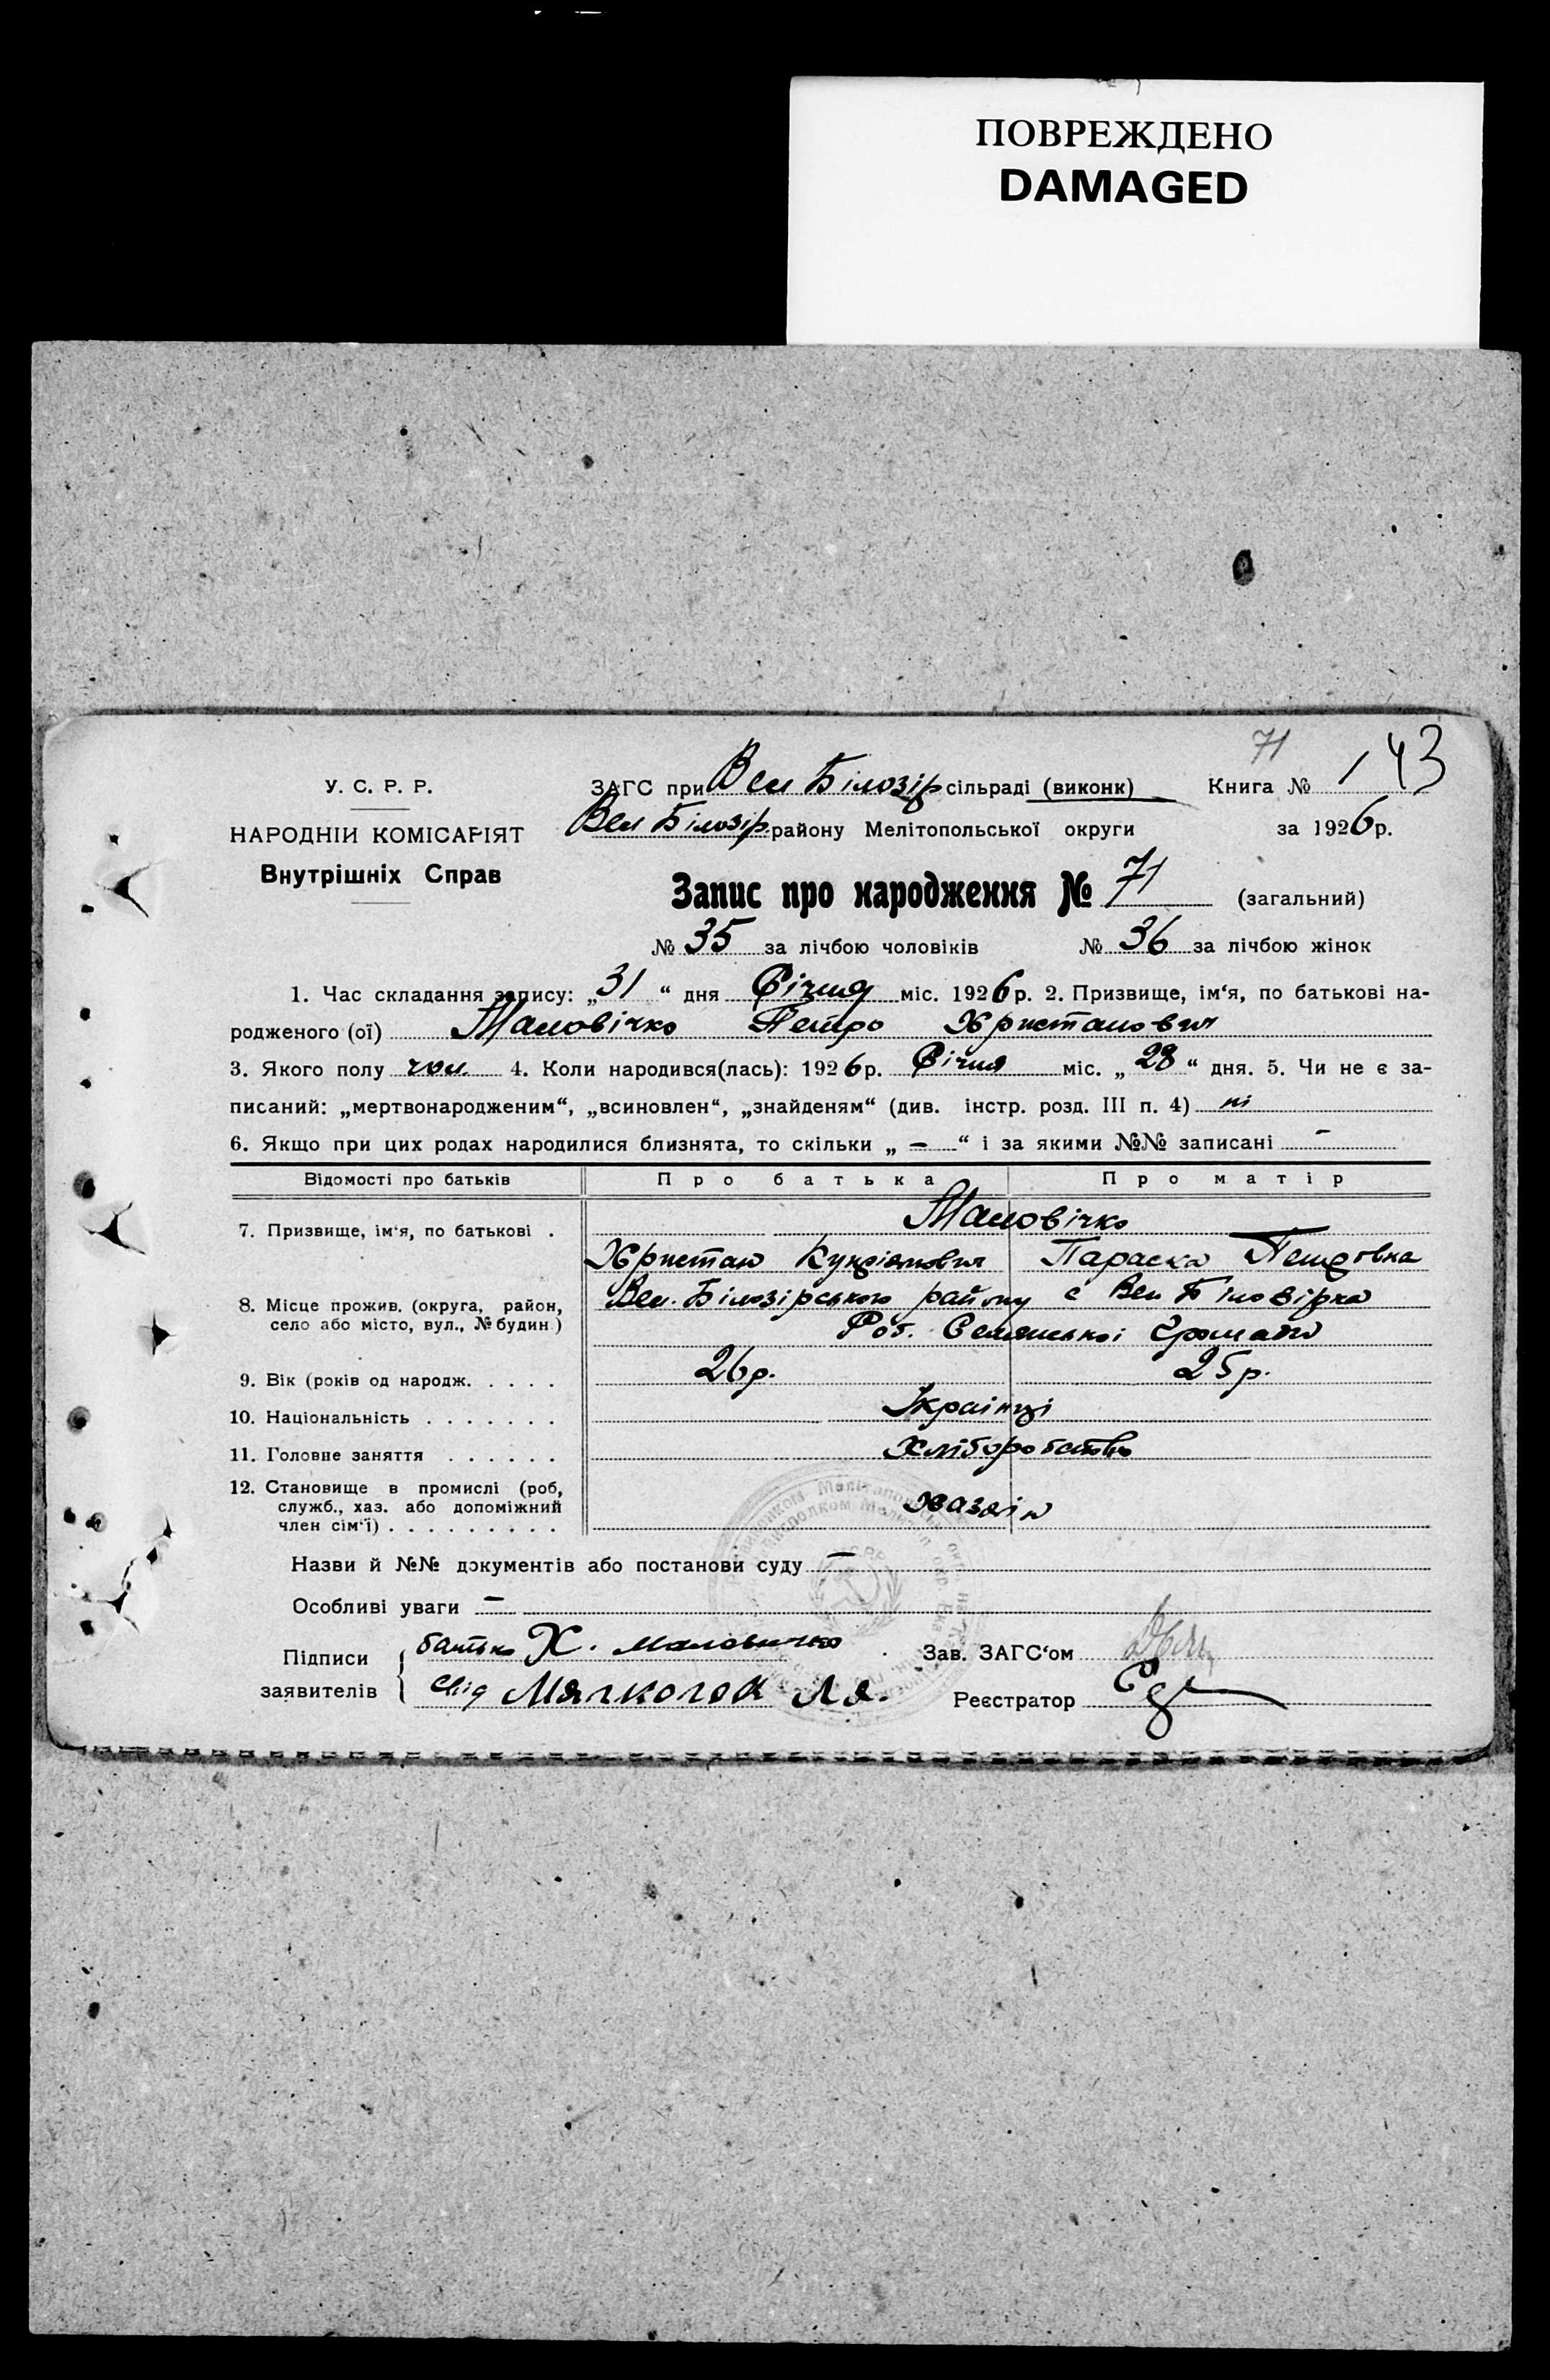 ПОВРЕЖДЕНО
DAMAGED
71
143
У. С. Р. Р.
ЗАГС при Вел Білозір сільраді (виконк) Книга № 1
НАРОДНІЙ КОМІСАРІЯТ
Вел Білозір. району Мелітопольської округи за 1926 р.
Внутрішніх Справ
Запис про народження № 71 (загальний)
№ 35 за лічбою чоловіків № 36 за лічбою жінок
1. Час складання запису: „31“ дня Січня міс. 1926 р. 2. Призвище, ім‘я, по батькові на-
родженого (ої) Маловічко Петро Христанович
3. Якого полу чол. 4. Коли народився(лась): 1926 р. Січня міс. „28“ дня. 5. Чи не є за-
писаний: „мертвонародженим“, „всиновлен“, „знайденям“ (див. інстр. розд. III п. 4) ні
6. Якщо при цих родах народилися близнята, то скільки „ – “ і за якими №№ записані –
Відомості про батьків Про батька Про матір
7. Призвище, ім‘я, по батькові . Маловічко
Христан Купріянович Параска Петровна
8. Місце прожив. (округа, район, село або місто, вул., № будин.) Вел. Білозірського району с Вел Білозірка
Роб. Селянської Громади
9. Вік (років од народж. . . . . 26 р. 25 р.
10. Національність . . . . . . . Українці
11. Головне заняття . . . . . . Хліборобство
12. Становище в промислі (роб, служб., хаз. або допоміжний член сім‘ї) . . . . . . . . . Хазяін
Назви й №№ документів або постанови суду –
Особливі уваги –
Підписи заявителів
батько Х. Маловичко
Зав. ЗАГС‘ом
свід Мячкогод Л Я.
Реєстратор